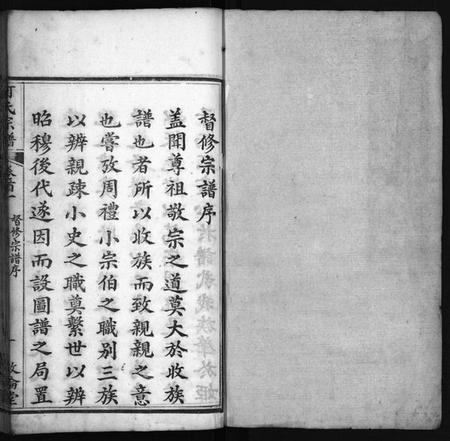 督修宗譜序
蓋聞尊祖敬宗之道莫大於收族
譜也者所以收族而致親親之意
也嘗攷周禮小宗伯之職別三族
以辨親疎小史之職奠繫世以辨
昭穆後代遂因而設圖譜之局置
氏宗譜 卷首一 督修宗譜序 一 敦倫堂